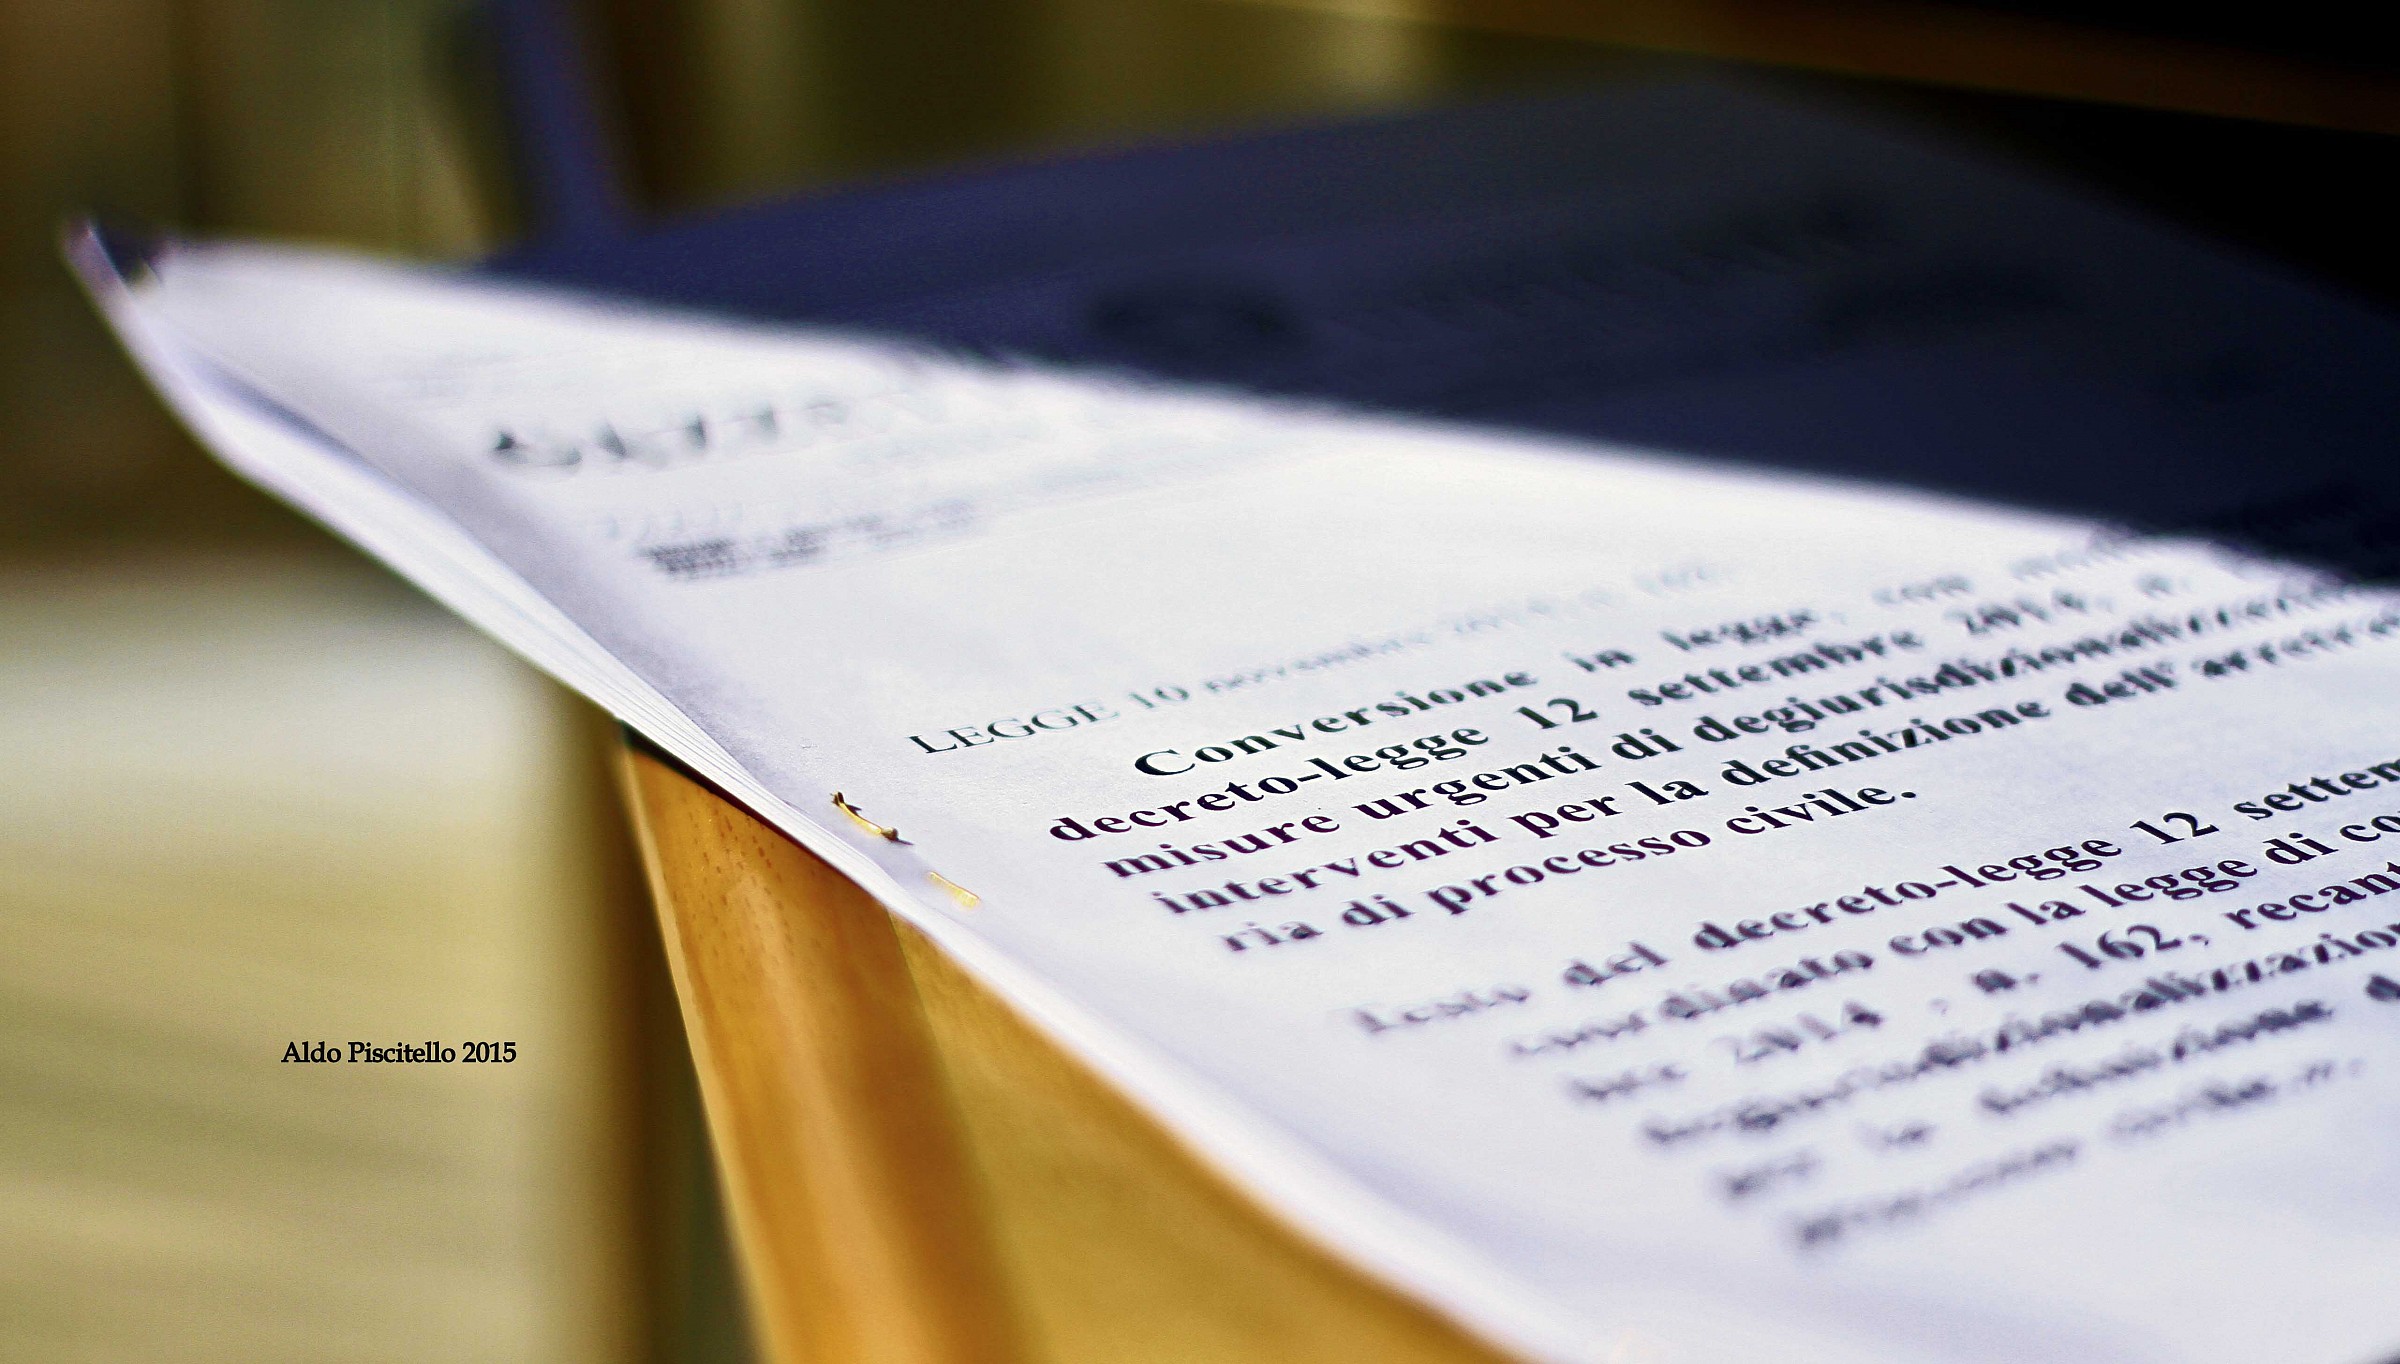 LEGGE 10 novembre 2014, n. 162.
Conversione in legge, con
decreto-legge 12 settembre 2014, n.
misure urgenti di degiurisdizionalizzazione
interventi per la definizione dell'arretrato
ria di processo civile.
Testo del decreto-legge 12 settem
coordinato con la legge di co
bre 2014, n. 162, recant
degiurisdizionalizzazion
per la definizione d
processo civile.
Aldo Piscitello 2015